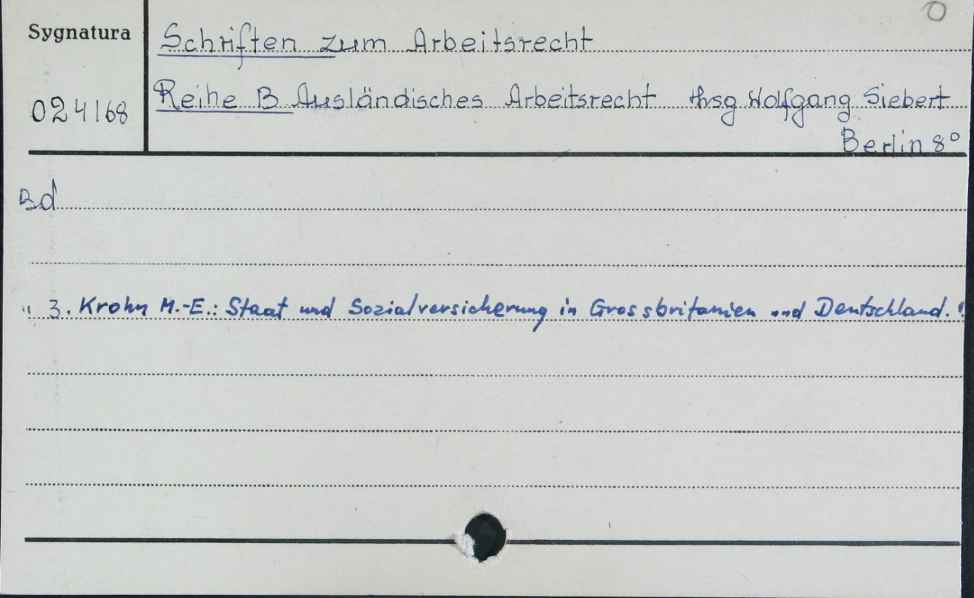 0
Sygnatura
Schriften zum Arbeitsrecht
024168
Reihe B Ausländisches Arbeitsrecht Hrsg Wolfgang Siebert
Berlin 8°
Bd
" 3. Krohn M.-E.: Staat und Sozialversicherung in Grossbritanien und Deutschland."